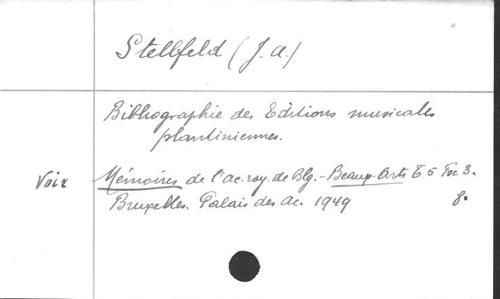 Stellfeld (J. A.)
Bibliographie des Editions musicales
plantiniennes.
Voir Mémoires de l'ac. roy. de Blg. - Beaux-Arts T 5 Fsc 3.
Bruxelles. Palais des Ac. 1949 8°